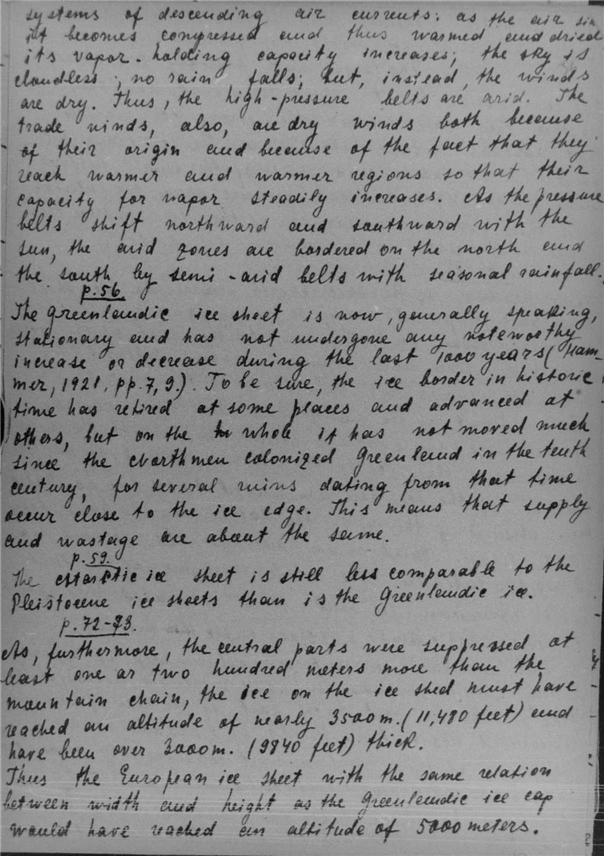 systems of descending air currents: as the air sin
it becomes compressed and thus warmed and dried
its vapor-holding capacity increases; the sky is
cloudless; no rain falls; but, instead, the winds
are dry. Thus, the high-pressure belts are arid. The
trade winds, also, are dry winds both because
of their origin and because of the fact that they
reach warmer and warmer regions so that their
capacity for vapor steadily increases. As the pressure
belts shift northward and southward with the
sun, the arid zones are bordered on the north and
the south by semi-arid belts with seasonal rainfall.
p.56
The Greenlandic ice sheet is now, generally speaking,
stationary and has not undergone any noteworthy
increase or decrease during the last 1000 years (Ham-
mer, 1921, pp. 7, 9.). To be sure, the ice border in historic
time has retired at some places and advanced at
others, but on the whole it has not moved much
since the Northmen colonized Greenland in the tenth
century, for several ruins dating from that time
occur close to the ice edge. This means that supply
and wastage are about the same.
p.59.
The ice sheet is still less comparable to the
Pleistocene ice sheets than is the Greenlandic ice.
p.72-73.
As, furthermore, the central parts were suppressed at
least one or two hundred meters more than the
mountain chain, the ice on the ice shed must have
reached an altitude of nearly 3500m. (11,480 feet) and
have been over 3000m. (9840 feet) thick.
Thus the European ice sheet with the same relation
between width and height as the Greenlandic ice cap
would have reached an altitude of 5000 meters.